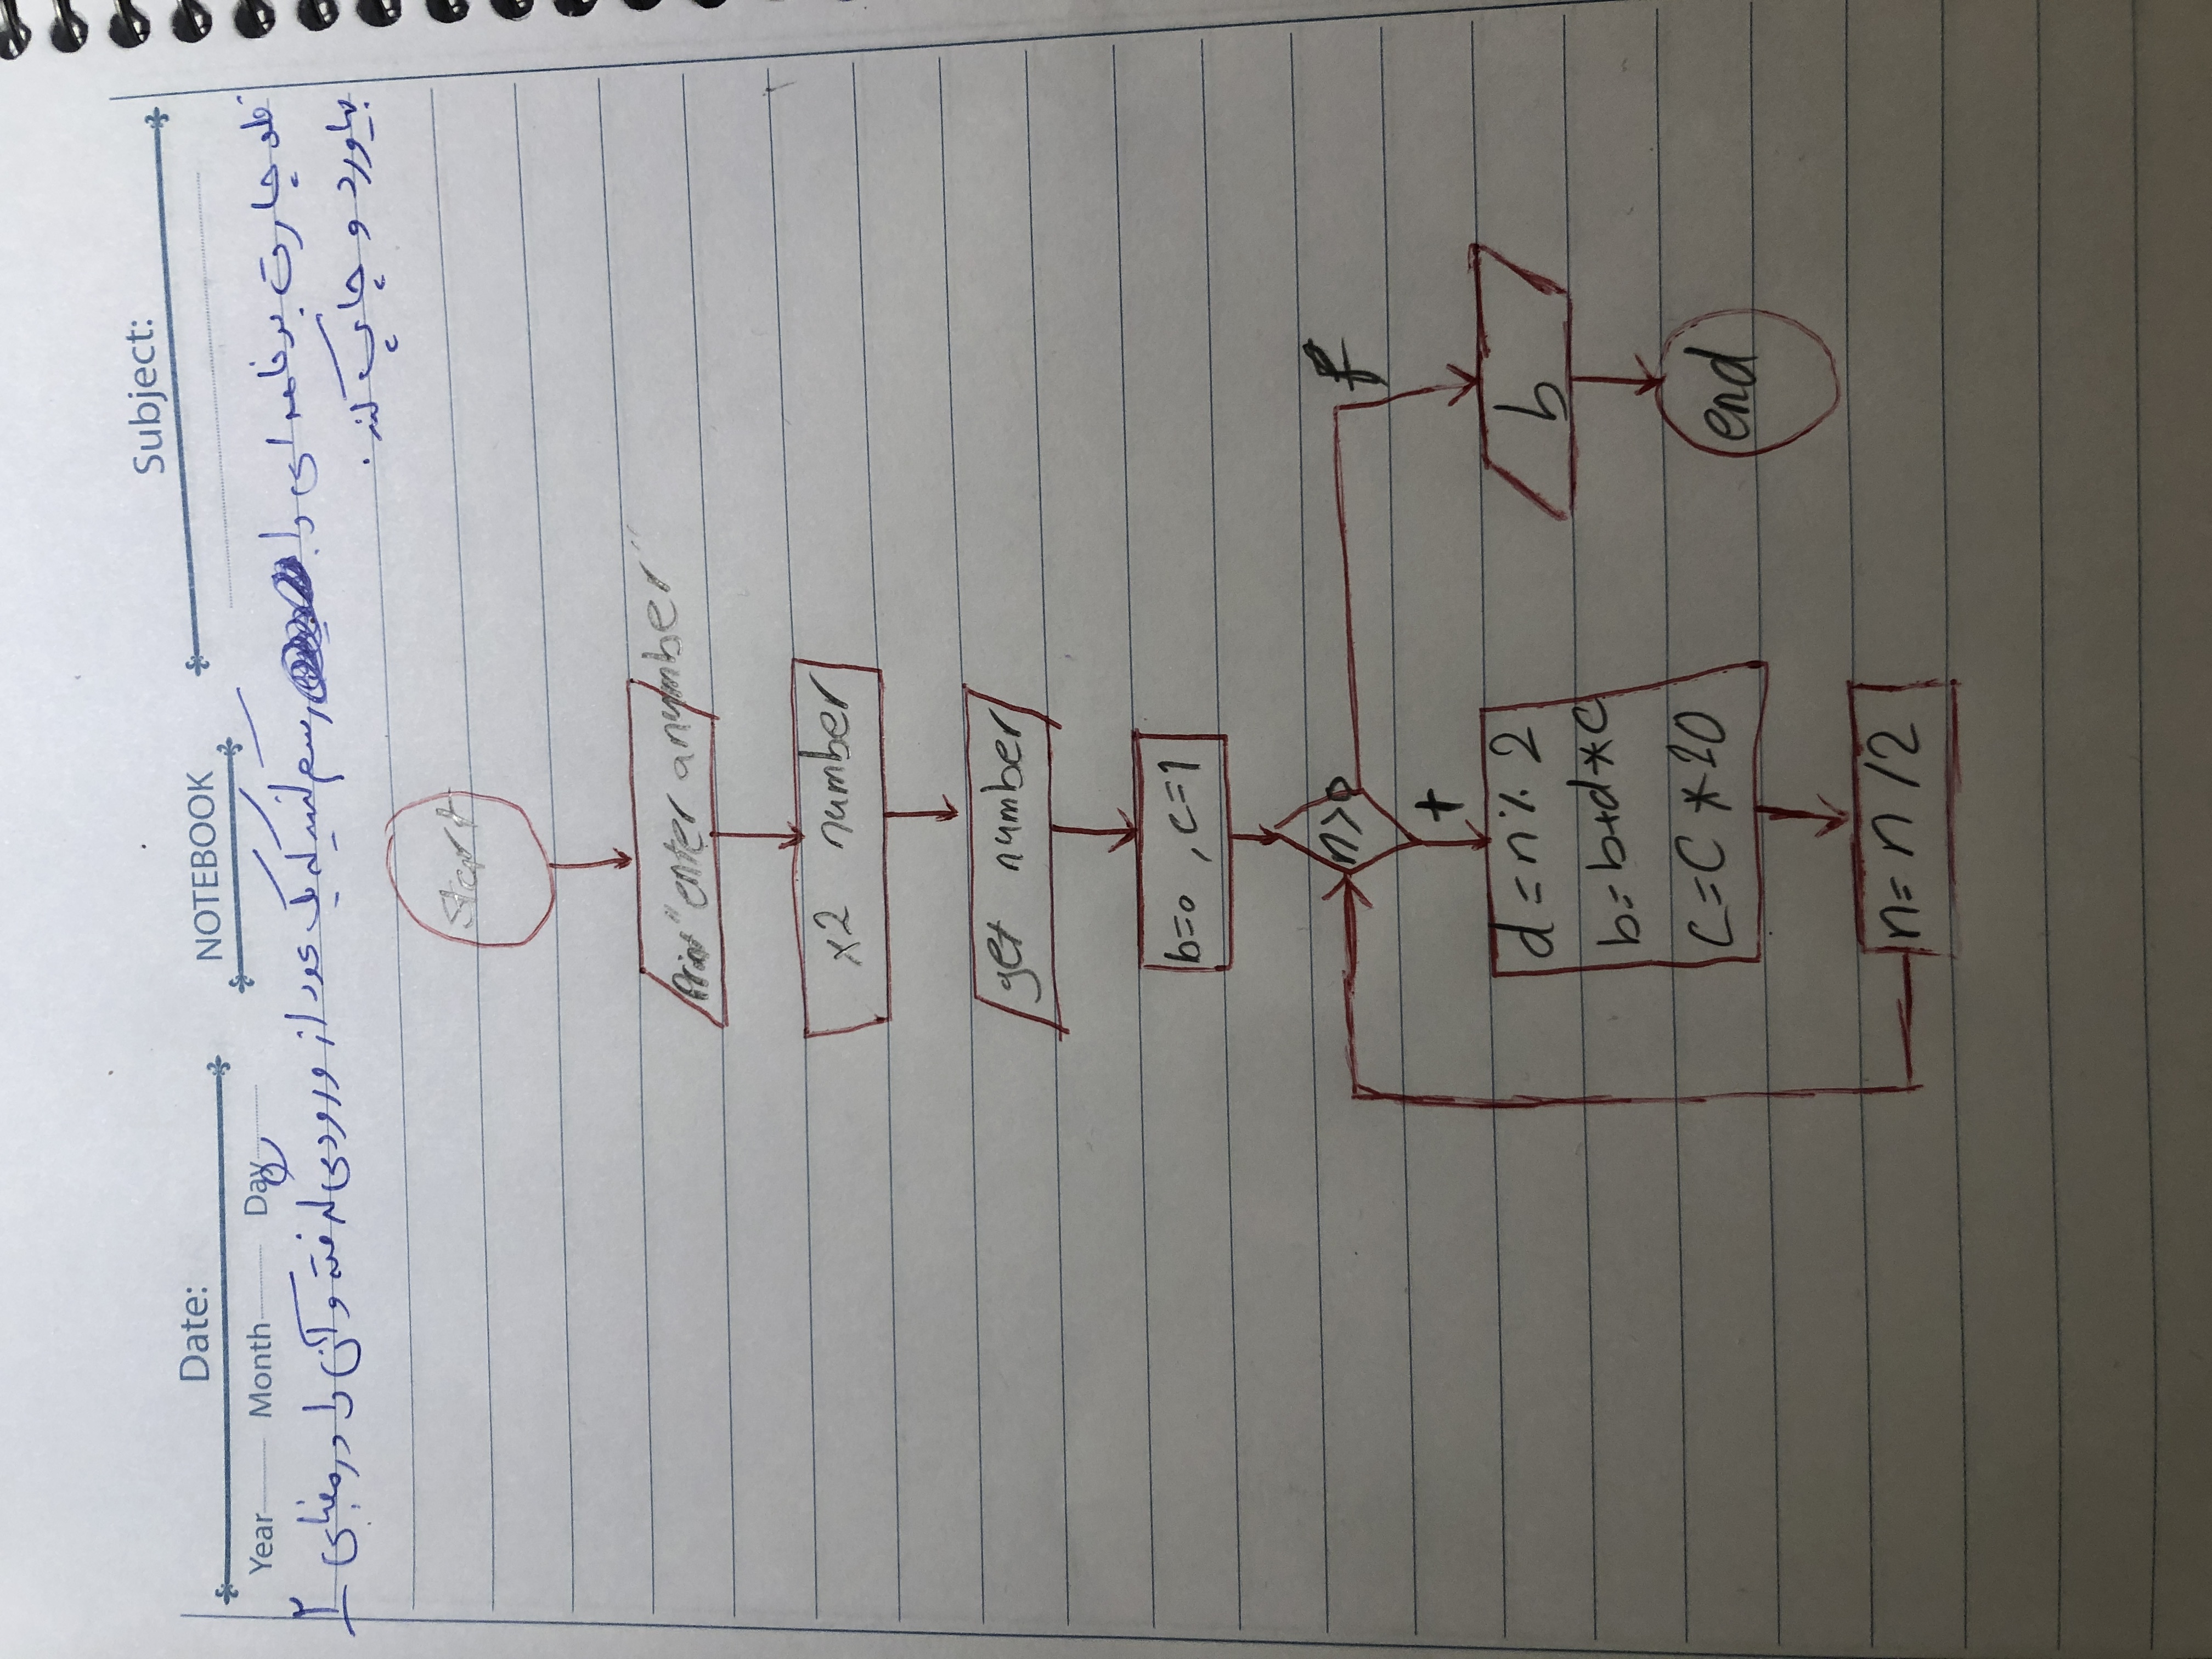 Subject:
Date:
NOTEBOOK
Year Month Day
فلوچارت برنامه ای را رسم کنید که یک عدد از ورودی گرفته و آن را در مبنای ۲
بیاورد و چاپ کند.
Start
Print "enter a number"
x2 number
get number
b=0 , c=1
n>0
f
+
d=n% 2
b=b+d*c
c=c*10
b
end
n= n /2